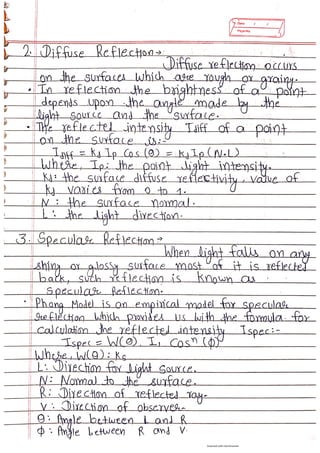 2. Diffuse Reflection →
Diffuse reflection occurs
on the surfaces which are rough or grainy.
• In reflection the brightness of a point
depends upon the angle made by the
light source and the surface.
• The reflected intensity Idiff of a point
on the surface is:-
Idiff = Kd Ip Cos (θ) = Kd Ip (N.L)
Where, Ip: the point light intensity.
Kd: the surface diffuse reflectivity, value of
Kd varies from 0 to 1.
N: the surface normal.
L: the light direction.
3. Specular Reflection →
When light falls on any
shiny or glossy surface most of it is reflected
back, such reflection is known as
Specular Reflection.
• Phong Model is an empirical model for specular
reflection which provides us with the formula for
calculation the reflected intensity Ispec:-
Ispec = W(θ). Il Cosⁿ (ϕ)
Where, W(θ): Ks
L: Direction for light source.
N: Normal to the surface.
R: Direction of reflected ray.
V: Direction of observer.
θ: Angle between L and R
ϕ: Angle between R and V.